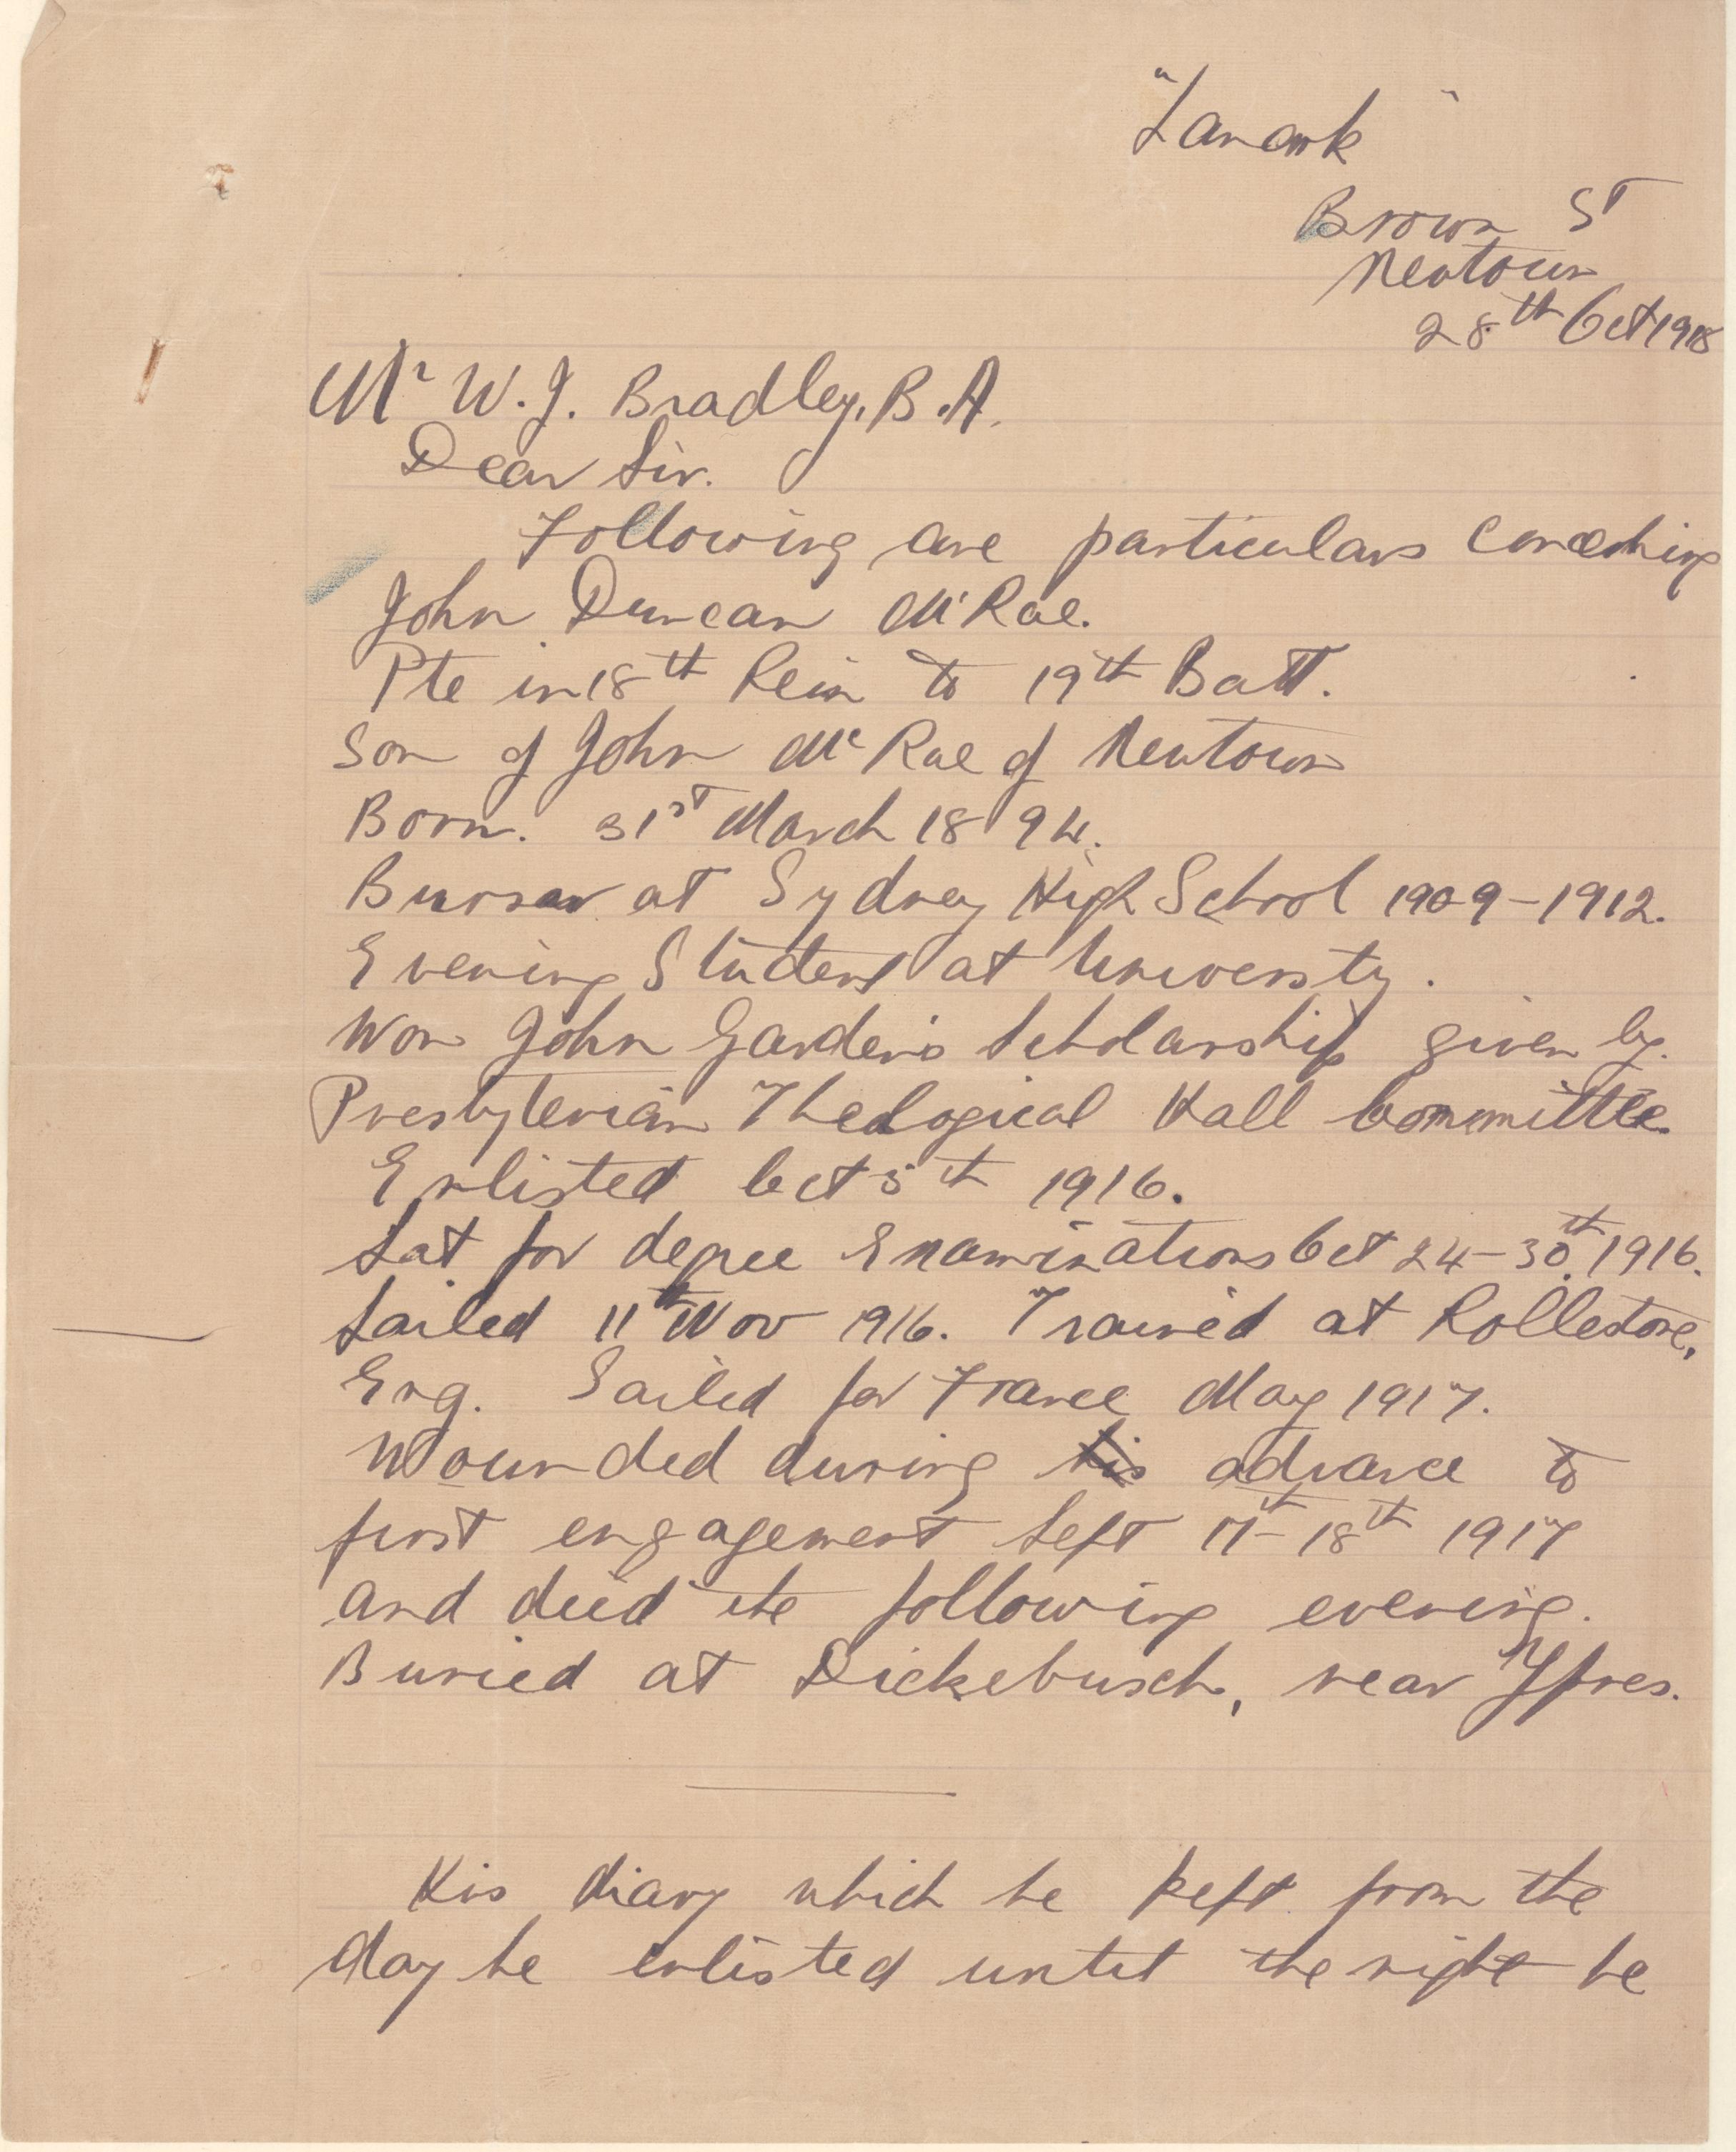 "Lanark"
Brown St
Newtown
28th Oct 1918
Mr W. J. Bradley, B.A.
Dear Sir.
Following are particulars concerning
John Duncan McRae.
Pte in 18th Rein to 19th Batt.
Son of John McRae of Newtown
Born. 31st March 1894.
Bursar at Sydney High School 1909-1912.
Evening Student at University.
Won John Garden's Scholarship given by
Presbyterian Theological Hall Committee.
Enlisted Oct 5th 1916.
Sat for degree Examinations Oct 24-30th, 1916.
Sailed 11th Nov 1916. Trained at Rollestone,
Eng. Sailed for France May 1917.
Wounded during his advance to
first engagement Sept 17th-18th 1917
and died the following evening.
Buried at Dickebusch, near Ypres.
His diary which he kept from the
day he enlisted until the night he